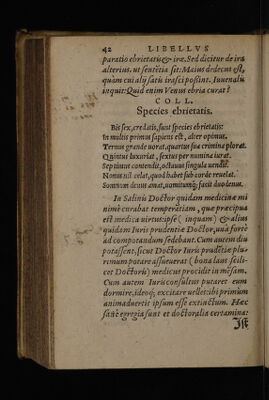 42 LIBELLVS
paratio ebrietatis & iræ. Sed dicitur de ira
alterius. ut sententia sit: Maius dedecus est,
quàm cui alij satis irasci possint. Iuuenalis
inquit: Quid enim Venus ebria curat?
COLL.
Species ebrietatis.
Bis sex, credatis, sunt species ebrietatis:
In multis primus sapiens est, alter opimus,
Ternus grande uorat, quartus sua crimina plorat.
Quintus luxuriat, sextus per numina iurat.
Septimus contendit, octauus singula uendit.
Nonus nil celat, quod habet sub corde reuelat.
Somnum denus amat, uomitumq; facit duodenus.
In Salinis Doctor quidam medicinæ mi
nimè curabat temperantiam, quæ præcipua
est medica uirtus: ipse (inquam) & alius
quidam Iuris prudentiæ Doctor, unà fortè
ad compotandum sedebant. Cum autem diu
potassent, sicut Doctor Iuris prudentiæ plu-
rimum potare assueuerat (bona laus scili-
cet Doctoris) medicus procidit in mensam.
Cum autem Iurisconsultus putaret eum
dormire, ideoq; excitare uellet: ibi primùm
animaduertit ipsum esse extinctum. Hæc
sanè egregia sunt et doctoralia certamina: